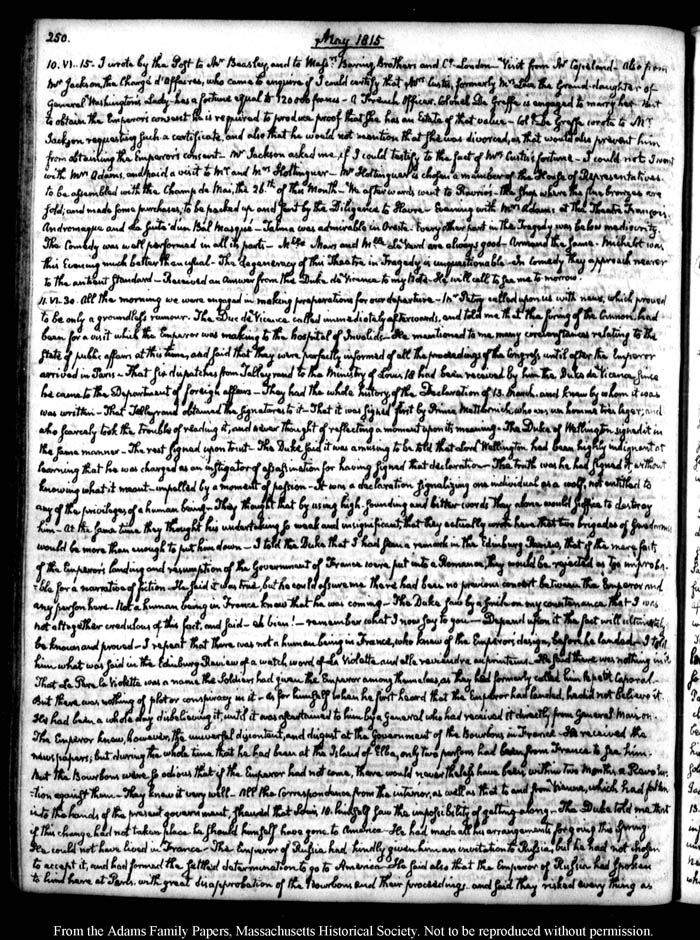 250.
May 1815
10. VI.15- I wrote by the Post to Mr Beasley, and to Messrs. Baring Brothers and Co. London- Visit from Mr Copeland- Also from
Mr Jackson, the Chargé d'Affaires, who came to enquire if I could certify that Mrs Custis, formerly Mrs Law the Grand-daughter of
General Washington's Lady has a fortune equal to 120000 francs- A French Officer, Colonel De Greffe is engaged to marry her- But
to obtain the Emperor's consent he is required to produce proof that she has an Estate of that value- Col De Greffe wrote to Mr
Jackson requesting such a certificate, and also that he would not mention that she was divorced, as that would also prevent him
from obtaining the Emperor's consent- Mr Jackson asked me, if I could testify to the fact of Mrs Custis's fortune- I could not. I went
with Mrs Adams, and paid a visit to Mr and Mrs Hottinguer- Mr Hottinguer is chosen a member of the House of Representatives
to be assembled with the Champ de Mai, the 26th of this Month- We afterwards went to Ravrio's- the shop where the fine bronzes are
sold; and made some purchases, to be packed up, and sent by the Diligence to Havre- Evening with Mrs Adams at The Théatre François.
Andromaque and la Suite d'un Bal Masqué- Talma was admirable in Oreste. Every other part in the Tragedy was below mediocrity.
The Comedy was well performed in all its parts- Mlle Mars and Mlle are always good- Armand the same- Michelot was
this Evening much better than usual- The degeneracy of this Theatre in Tragedy is unquestionable- In Comedy, they approach nearer
to the antient Standard- Received an answer from the Duke de Vicence to my Note- He will call to see me to morrow.
11. VI.30. All the morning we were engaged in making preparations for our departure- Mr Petry called upon us with news, which proved
to be only a groundless rumour. The Duc de Vicence called immediately afterwards, and told me that the firing of the Cannon, had
been for a visit which the Emperor was making to the hospital of Invalids- He mentioned to me, many circumstances relating to the
state of public affairs at this time, and said that they were perfectly informed of all the proceedings of the Congress, until after the Emperor
arrived in Paris- That six dispatches from Talleyrand to the Ministry of Louis 18 had been received by him the Duke de Vicence, since
he came to the Department of foreign affairs- They had the whole history of the Declaration of 13. March. and knew by whom it was
was written- That Talleyrand obtained the signatures to it- That it was signed first by Prince Metternich, who was un homme tres leger; and
who scarcely took the trouble of reading it, and never thought of reflecting a moment upon its meaning- The Duke of Wellington signed it in
the same manner- The rest signed upon trust- The Duke said it was amusing to be told that Lord Wellington had been highly indignant at
learning that he was charged as an instigator of assassination for having signed that declaration- The truth was he had signed it without
knowing what it meant- impelled by a moment of passion- It was a declaration signalizing one individual as a wolf, not entitled to
any of the privileges of a human being- They thought that by using high-sounding and bitter words they alone would suffice to destroy
him- At the same time they thought his undertaking so weak and insignificant, that they actually wrote here that two brigades of Gendarmes
would be more than enough to put him down- I told the Duke that I had seen a remark in the Edinburg Review, that if the mere facts
of the Emperor's landing and resumption of the Government of France were put into a Romance, they would be rejected as too improba-
-ble for a narrative of fiction- He said it was true, but he could assure me there had been no previous concert between the Emperor and
any person here. Not a human being in France knew that he was coming- The Duke saw by a smile on my countenance that I was
not altogether credulous of this fact, and said- eh bien!- remember what I now say to you- Depend upon it the fact will ultimately
be known and proved- I repeat that there was not a human being in France, who knew of the Emperor's design, before he landed- I told
him what was said in the Edinburg Review of a watch word of La Violette and elle reviendra au printems- He said there was nothing in it
That Le Père la Violette was a name the Soldiers had given the Emperor among themselves as they had formerly called him le petit Caporal-
But there was nothing of plot or conspiracy in it- As for himself when he first heard that the Emperor had landed, he did not believe it.
He had been a whole day disbelieving it, until it was ascertained to him by a General who had received it directly from General Maison.
The Emperor knew, however, the universal discontent, and disgust at the Government of the Bourbons in France- He received the
newspapers; but during the whole time that he had been at the Island of Elba, only two persons had been from France to see him.
But the Bourbons were so odious that if the Emperor had not come, there would nevertheless have been within two Months a Revolu-
-tion against them- They knew it very well- All the Correspondence from the interior, as well as that to and from Vienna, which had fallen
into the hands of the present government, shewed that Louis 18. himself saw the impossibility of getting along- The Duke told me that
if this change had not taken place he should himself have gone to America- He had made all his arrangements for going this Spring
He could not have lived in France- The Emperor of Russia had kindly given him an invitation to Russia, but he had not chosen
to accept it, and had formed the settled determination to go to America- He said also that the Emperor of Russia had spoken
to him here at Paris, with great disapprobation of the Bourbons and their proceedings and said they risked every thing as
From the Adams Family Papers, Massachusetts Historical Society. Not to be reproduced without permission.